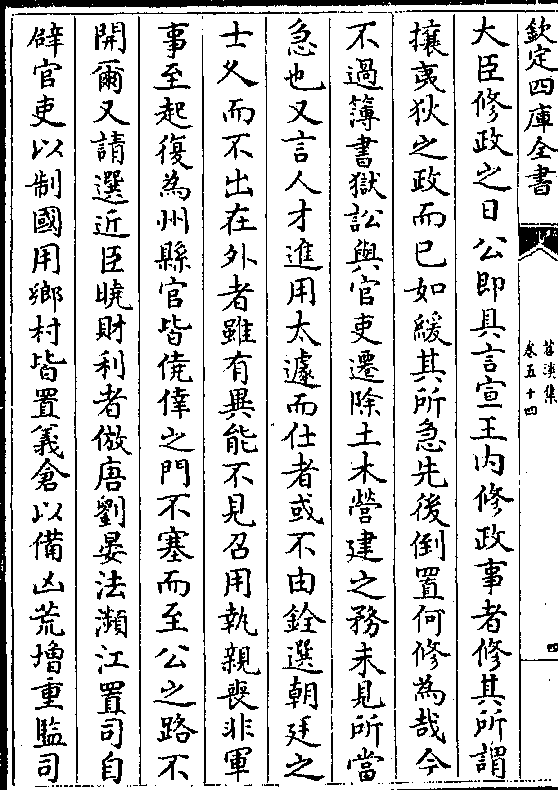 欽定四庫全書
苕溪集
卷五十四
四
大臣修政之日公即具言宣王内修政事者修其所謂
攘夷狄之政而已如緩其所急先後倒置何修為哉今
不過簿書獄訟與官吏遷除土木營建之務未見所當
急也又言人才進用太遽而仕者或不由銓選朝廷之
士久而不出在外者雖有異能不見召用執親喪非軍
事至起復為州縣官皆僥倖之門不塞而至公之路不
開爾又請選近臣曉財利者倣唐劉晏法瀕江置司自
辟官吏以制國用鄉村皆置義倉以備凶荒增重監司